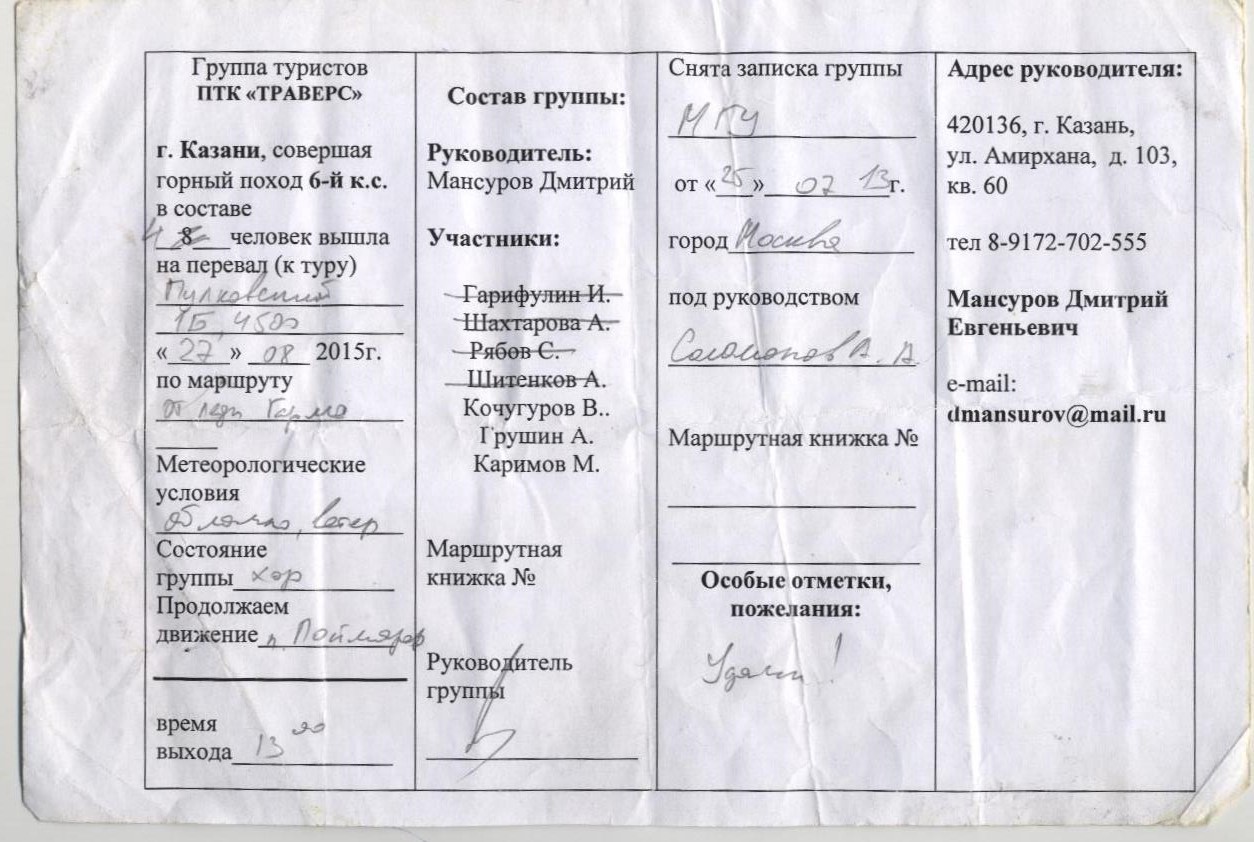 Группа туристов
ПТК «ТРАВЕРС»
г. Казани, совершая
горный поход 6-й к.с.
в составе
4 8 человек вышла
на перевал (к туру)
Пулковский
1Б, 4500
«27» 08 2015г.
по маршруту
от ледн Гармо
Метеорологические
условия
облачно, ветер
Состояние
группы хор
Продолжаем
движение п. Поймазор
время
выхода 13 00
Состав группы:
Руководитель:
Мансуров Дмитрий
Участники:
Гарифулин И.
Шахтарова А.
Рябов С.
Шитенков А.
Кочугуров В..
Грушин А.
Каримов М.
Маршрутная
книжка №
Руководитель
группы
Снята записка группы
МГУ
от «25» 07 13г.
город Москва
под руководством
Соломонов А. А
Маршрутная книжка №
Особые отметки,
пожелания:
Удачи!
Адрес руководителя:
420136, г. Казань,
ул. Амирхана, д. 103,
кв. 60
тел 8-9172-702-555
Мансуров Дмитрий
Евгеньевич
e-mail:
dmansurov@mail.ru